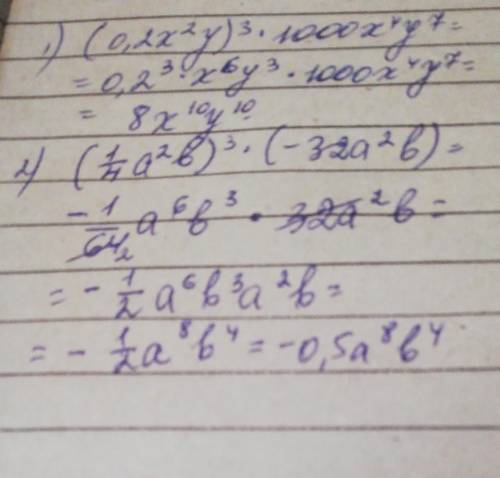 1.) (0,2x²y)³ · 1000x⁴y⁷ =
= 0,2³ · x⁶y³ · 1000x⁴y⁷ =
= 8x¹⁰y¹⁰
2) (1/4 a²b)³ · (-32a²b) =
-1/64₂ a⁶b³ · 32a²b =
= - 1/2 a⁶b³a²b =
= - 1/2 a⁸b⁴ = -0,5a⁸b⁴